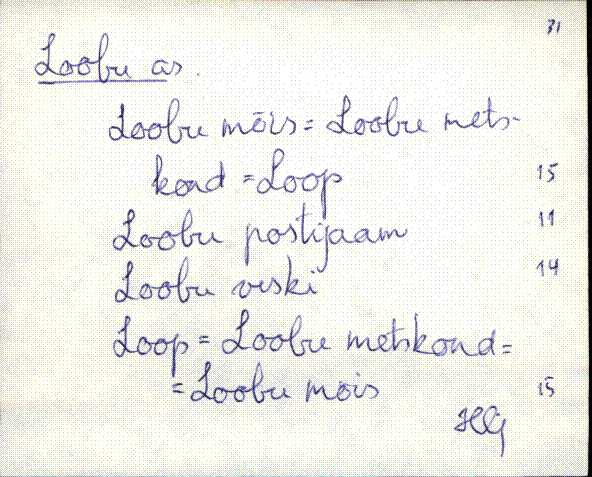 31
Loobu as.
Loobu mõis = Loobu mets-
kond = Loop 15
Loobu postijaam 11
Loobu veski 14
Loop = Loobu metskond =
= Loobu mõis 15
HG